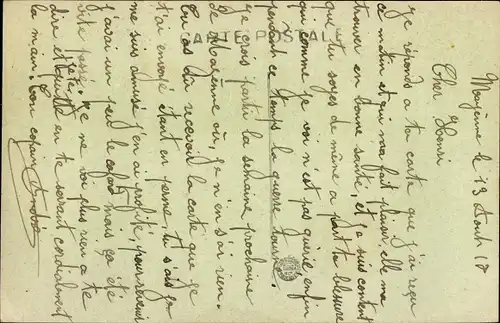 Mayenne le 13 Août 18
Cher Henri
Je réponds a ta carte que j'ai reçu
ce matin et qui ma fait plaisir, elle ma
trouver en bonne santé, et je suis content
que tu soyes de même a part ta blessure
qui comme je voi n'est pas guérie, enfin
pendant ce temps la guerre tourne
je crois partir la semaine prochaine
de Mayenne ou, je n'en s'ai rien.
Tu as dû recevoir la carte que je
t'ai envoyé étant en perme, tu s'ais je
me suis amusé j'en ai profité, pour revenir
j'avai un peu le cafard mais ça été
vite passé, je ne voi plus rien a te
dire et je quitte en te serrant cordialement
la main. Ton copain
CARTE POSTALE